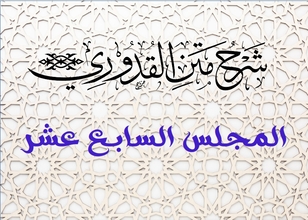 شرح متن القدوري
المجلس السابع عشر